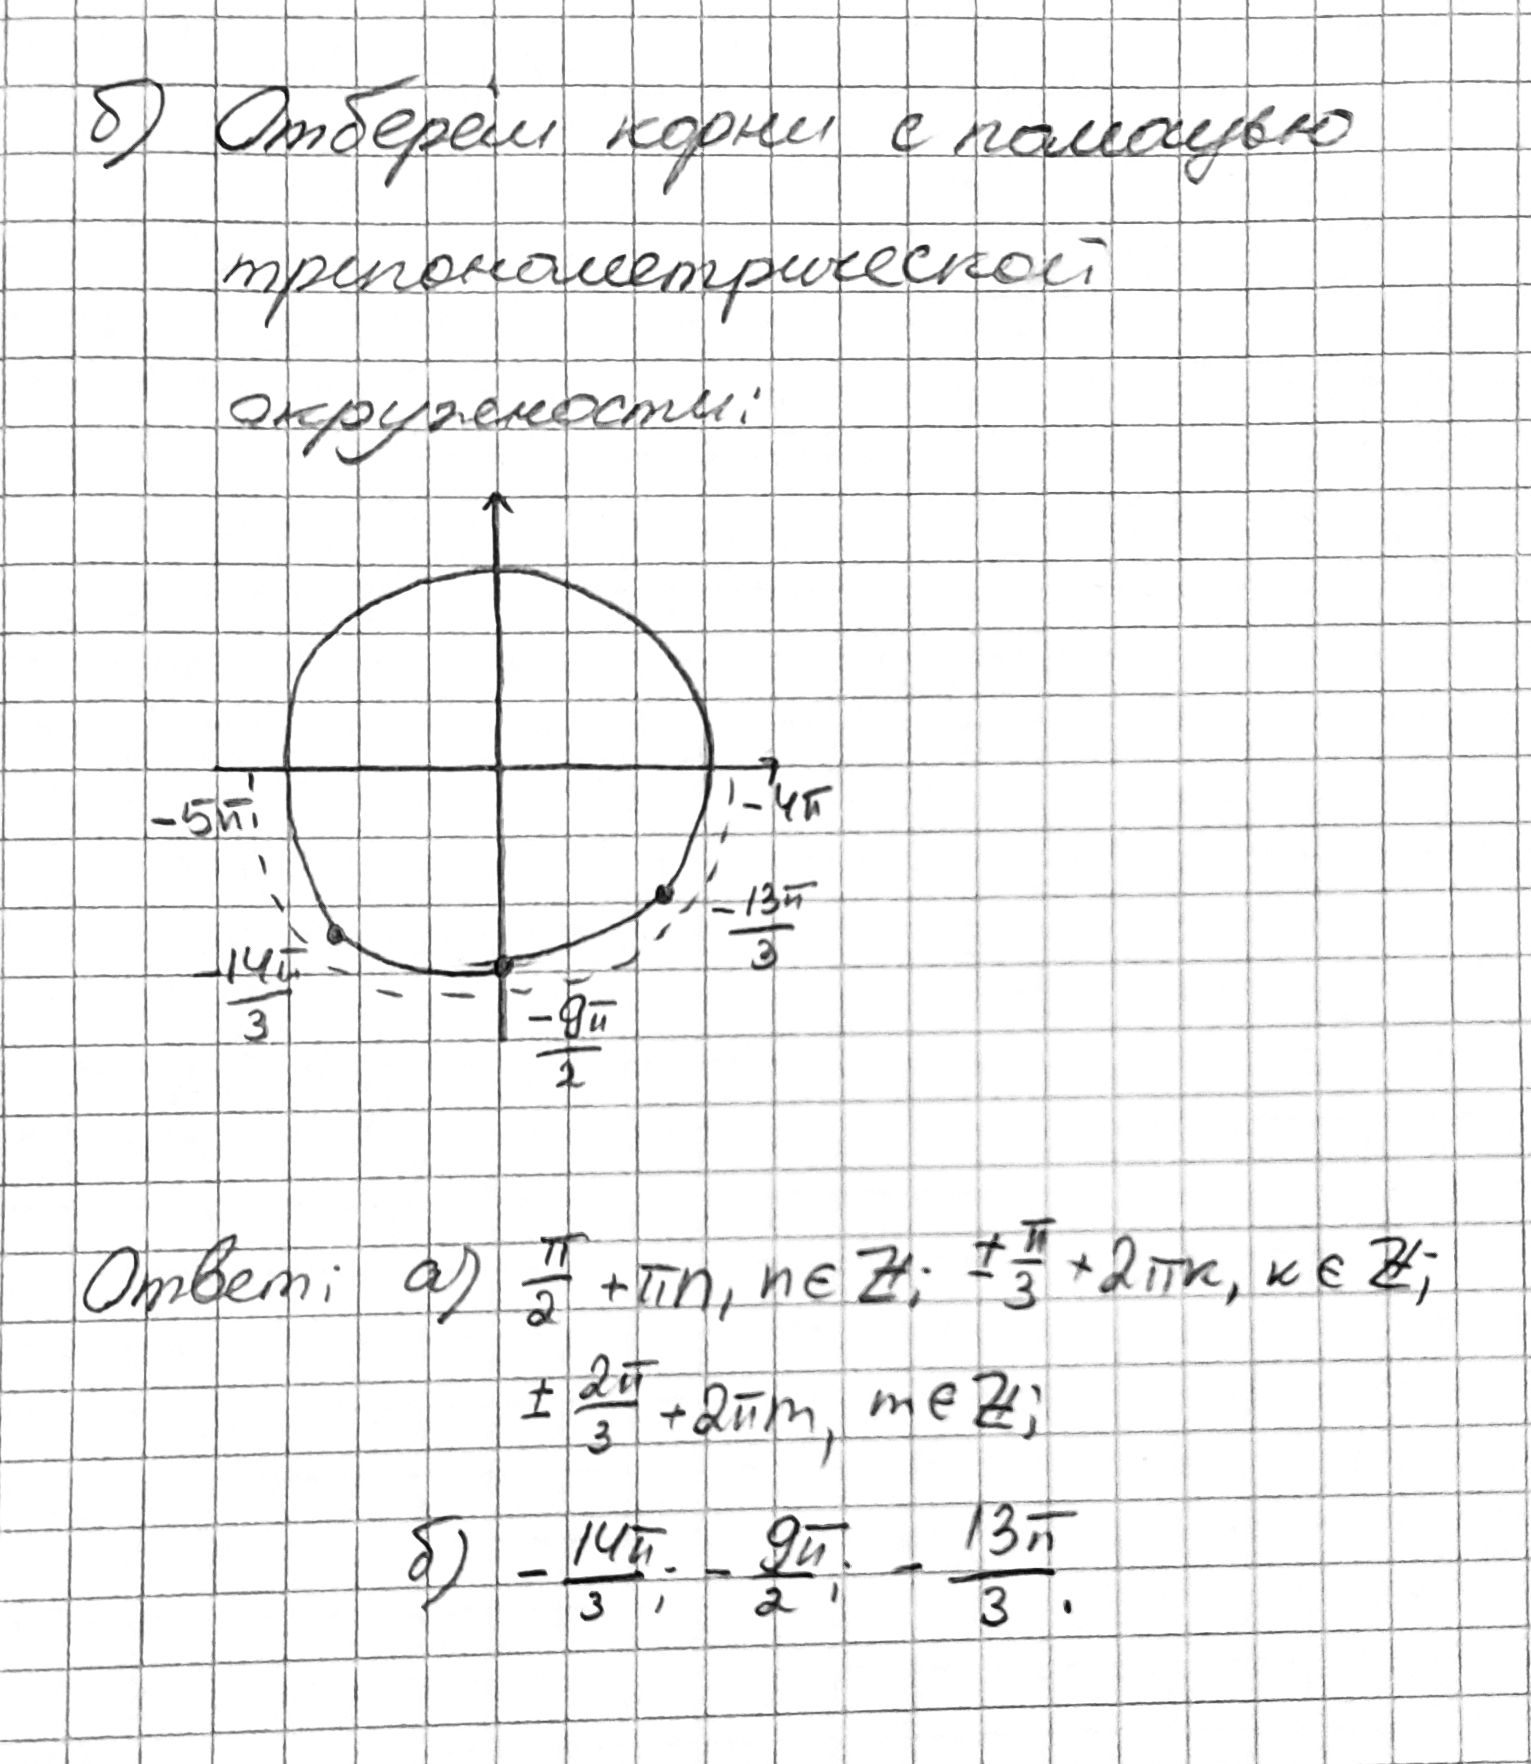 б) Отберём корни с помощью
тригонометрической
окружности:
-5π
-4π
-13π/3
-14π/3
-9π/2
Ответ: а) π/2 + πn, n ∈ Z; ± π/3 + 2πk, k ∈ Z;
± 2π/3 + 2πm, m ∈ Z;
б) - 14π/3; - 9π/2; - 13π/3.